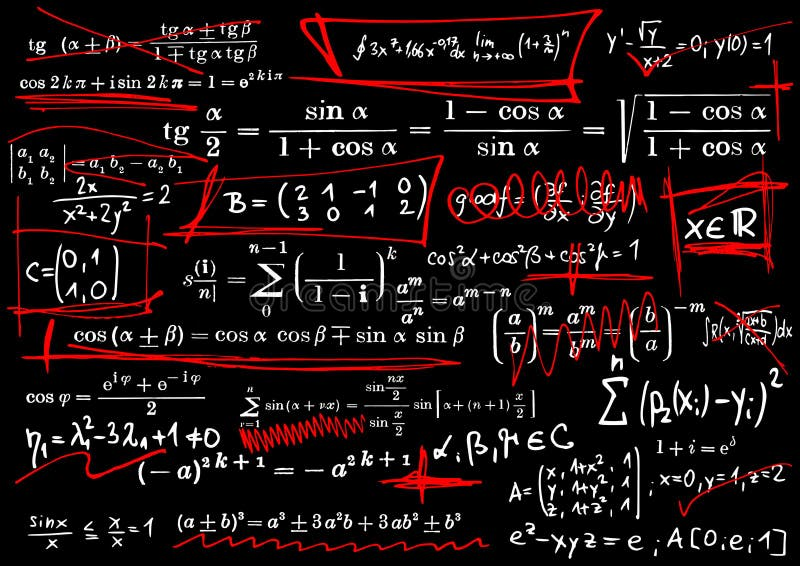 tg (α ± β) = (tg α ± tg β)/(1 ∓ tg α tg β)
∮ 3x⁷ + 1,66x⁻⁰·¹⁷ dx lim n→+∞ (1 + 3/n)ⁿ
y' - √y/(x+2) = 0; y(0) = 1
cos 2 k π + i sin 2 k π = 1 = e^(2 k i π)
tg α/2 = sin α/(1 + cos α) = (1 − cos α)/sin α = √((1 − cos α)/(1 + cos α))
|a₁ a₂ b₁ b₂| = a₁ b₂ − a₂ b₁
2x/(x² + 2y²) = 2
B = (2 1 -1 0
3 0 1 2)
grad f = (∂f/∂x ; ∂f/∂y)
x ∈ ℝ
cos²α + cos²β + cos²γ = 1
C = (0, 1
1, 0)
s(i)/n| = ∑ n−1 0 (1/(1 − i))^k
aᵐ/aⁿ = aᵐ⁻ⁿ
cos (α ± β) = cos α cos β ∓ sin α sin β
(a/b)ᵐ = aᵐ/bᵐ = (b/a)⁻ᵐ
∫R(x, √((ax+b)/(cx+d)))dx
cos φ = (e^(iφ) + e^(−iφ))/2
∑ n r=1 sin (α + rx) = (sin nx/2)/(sin x/2) sin [α + (n + 1) x/2]
n ∑ (p₂(xᵢ) − yᵢ)²
η₁ = λ₁² − 3λ₁ + 1 ≠ 0
(− a)^(2 k + 1) = − a^(2 k + 1)
α, β, γ ∈ C
1 + i = e^δ
A = (x, 1+x², 1
y, 1+y², 1
z, 1+z², 1) ; x=0, y=1, z=2
sin x/x ≤ x/x = 1
(a ± b)³ = a³ ± 3 a²b + 3 ab² ± b³
e^z − xyz = e ; A[0; e; 1]
dreamstime